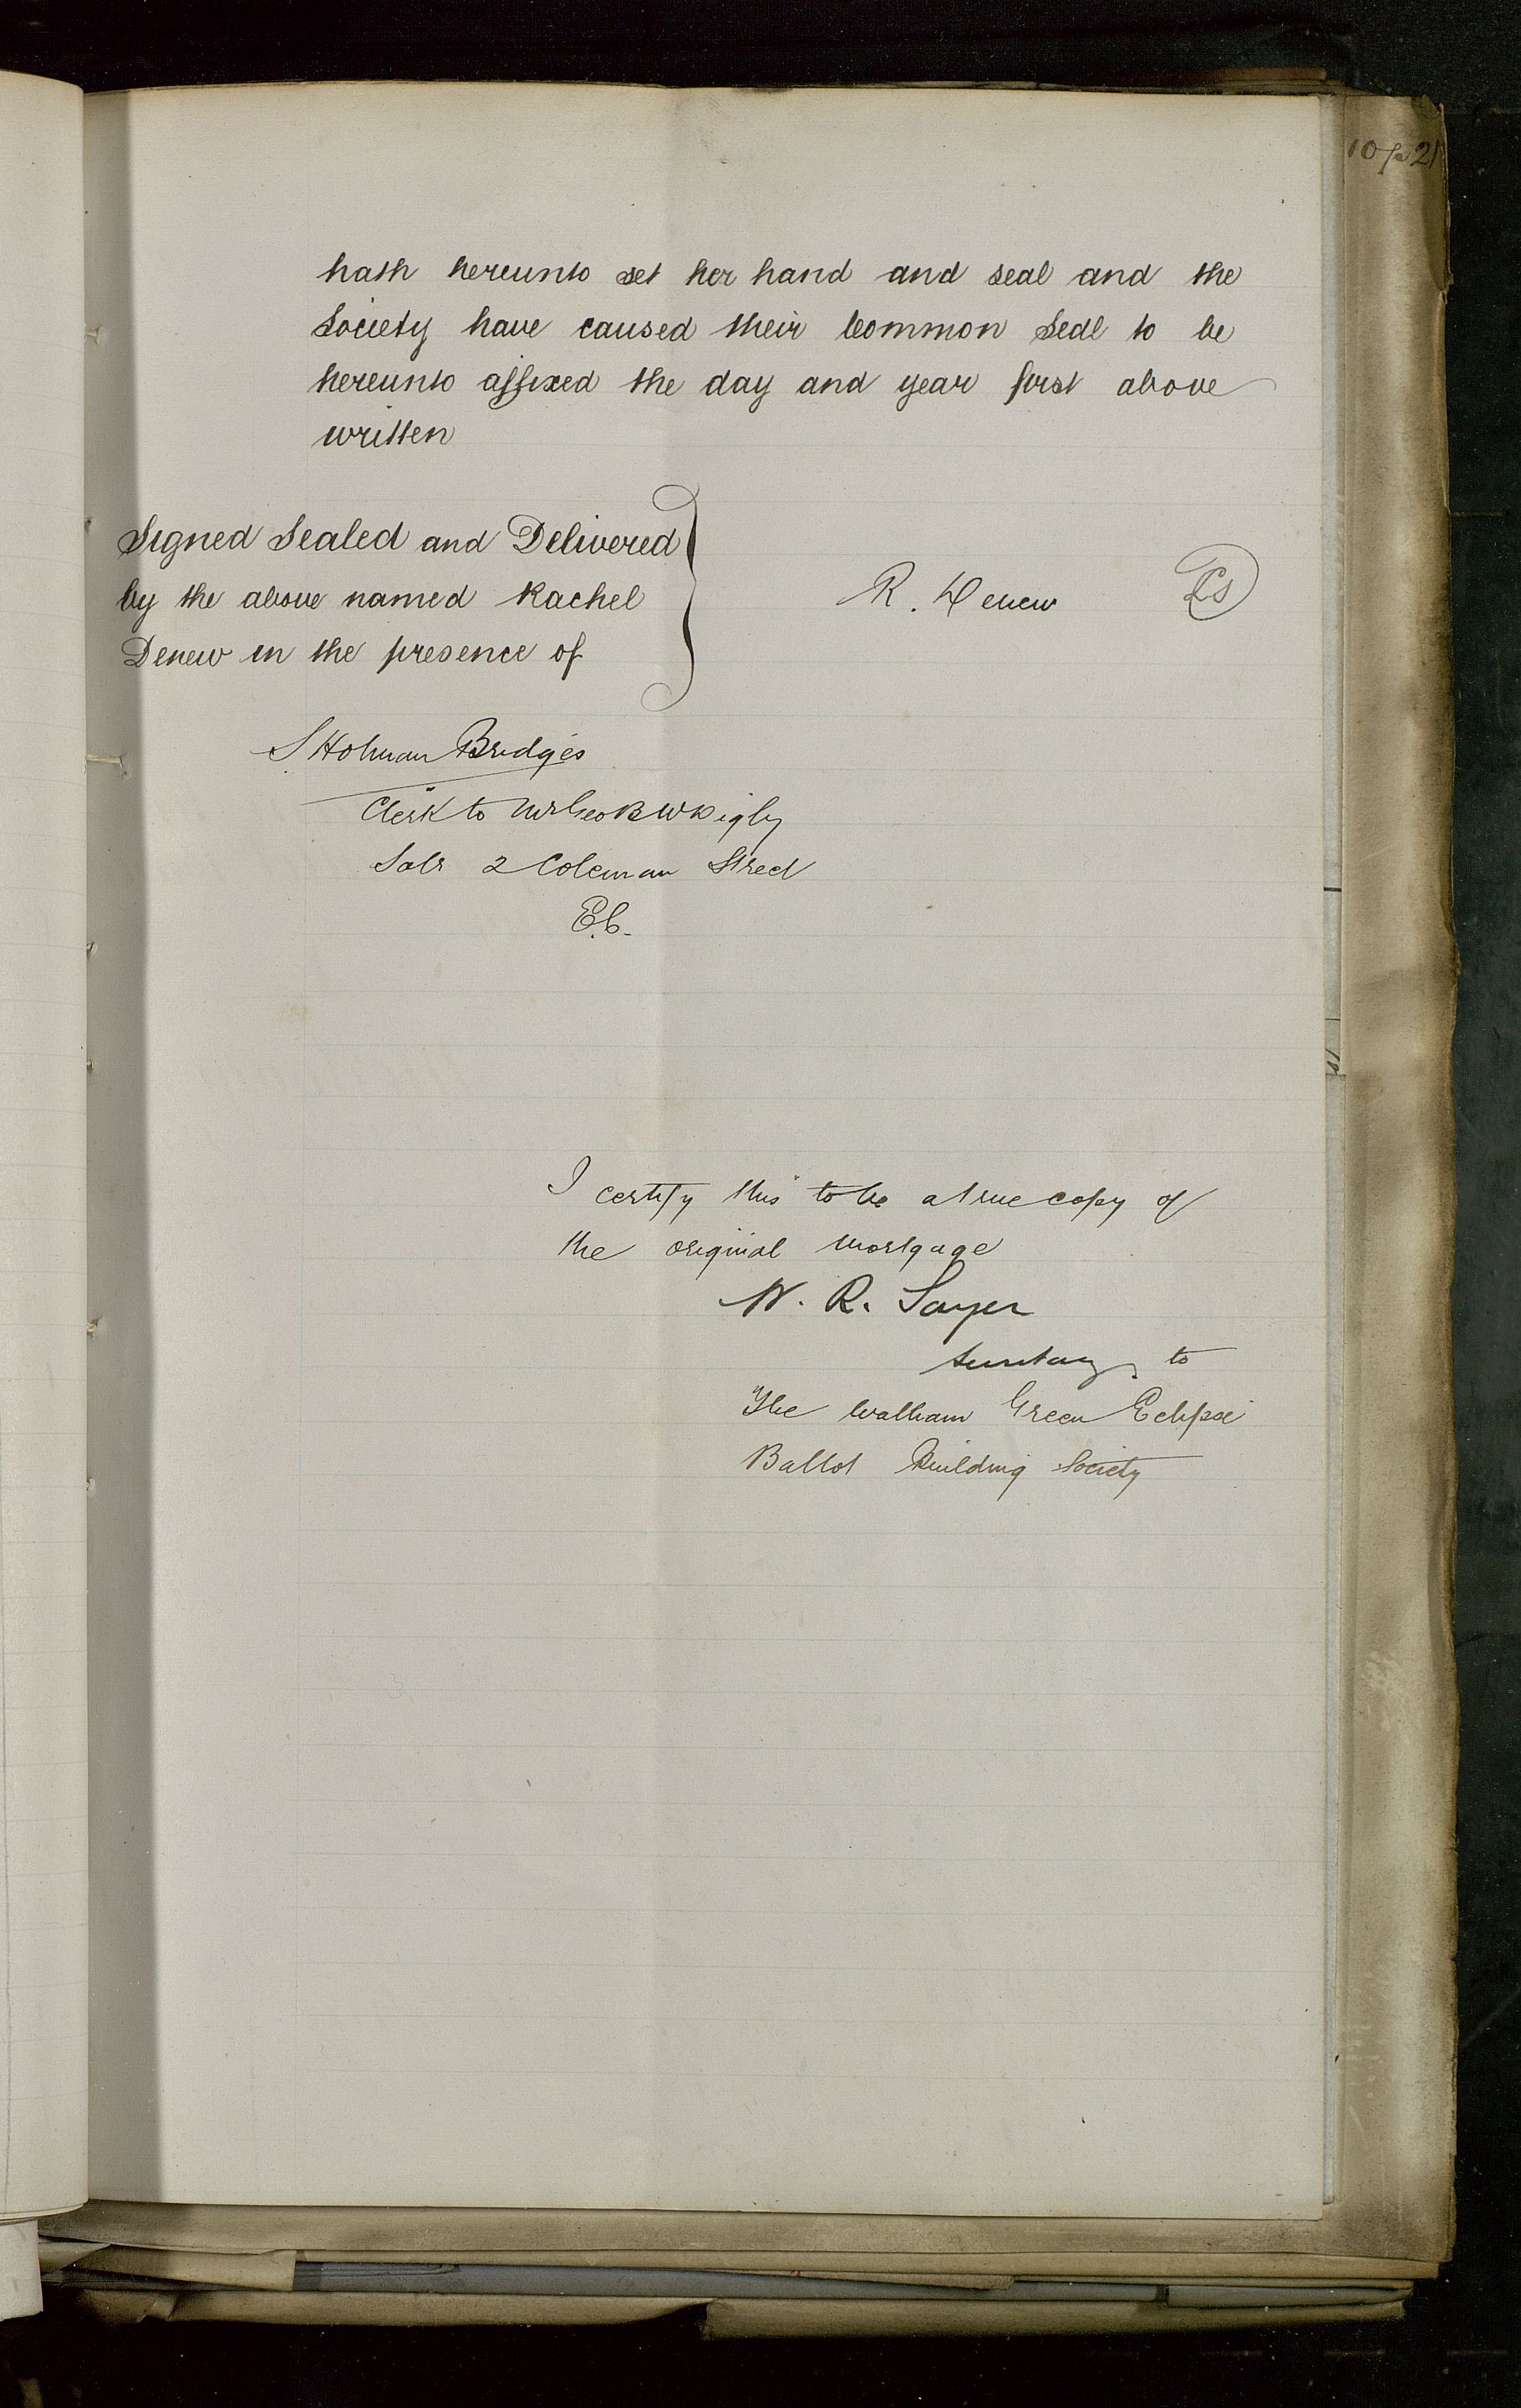 10 p 21
hath hereunto set her hand and seal and the
Society have caused their Common Seal to be
hereunto affixed the day and year first above
written
Signed Sealed and Delivered
by the above named Rachel
Denew in the presence of
R. Denew LS
S Holman Bridges
Clerk to Mr Geo B W Digby
Solr 2 Coleman Street
E.C.
I certify this to be a true copy of
the original Mortgage
W. R. Sayer
Secretary to
The Walham Green Eclipse
Ballot Building Society